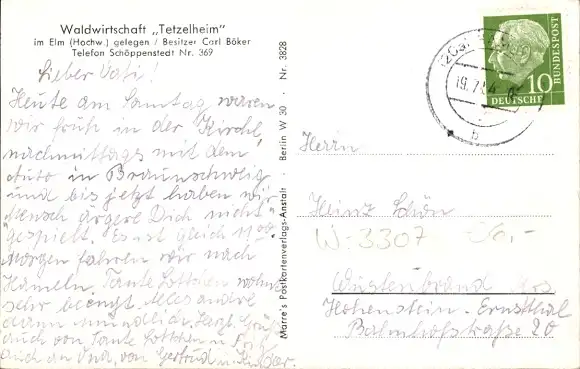 Waldwirtschaft „Tetzelheim"
im Elm (Hochw.) gelegen / Besitzer Carl Böker
Telefon Schöppenstedt Nr. 369
Lieber Vati!
Heute am Samtag waren
wir früh in der Kirche,
nachmittags mit dem
Auto in Braunschweig
und bis jetzt haben wir
"Mensch ärgere Dich nicht"
gespielt. Es ist gleich 11⁰⁰
Morgen fahren wir nach
Hameln. Tante Lottchen
sehr beengt. Alles andre
dann mündlich. Herzl. Grüße
auch von Tante Lottchen u.
auch an Una, von Gertrud u.
Marre's Postkartenverlags-Anstalt · Berlin W 30 · Nr. 3828
19.7.54
b
10
DEUTSCHE
BUNDESPOST
Herrn
Heinz Schön
W-3307 6,-
Wüstenbrand
Hohenstein-Ernstthal
Bahnhofstraße 20